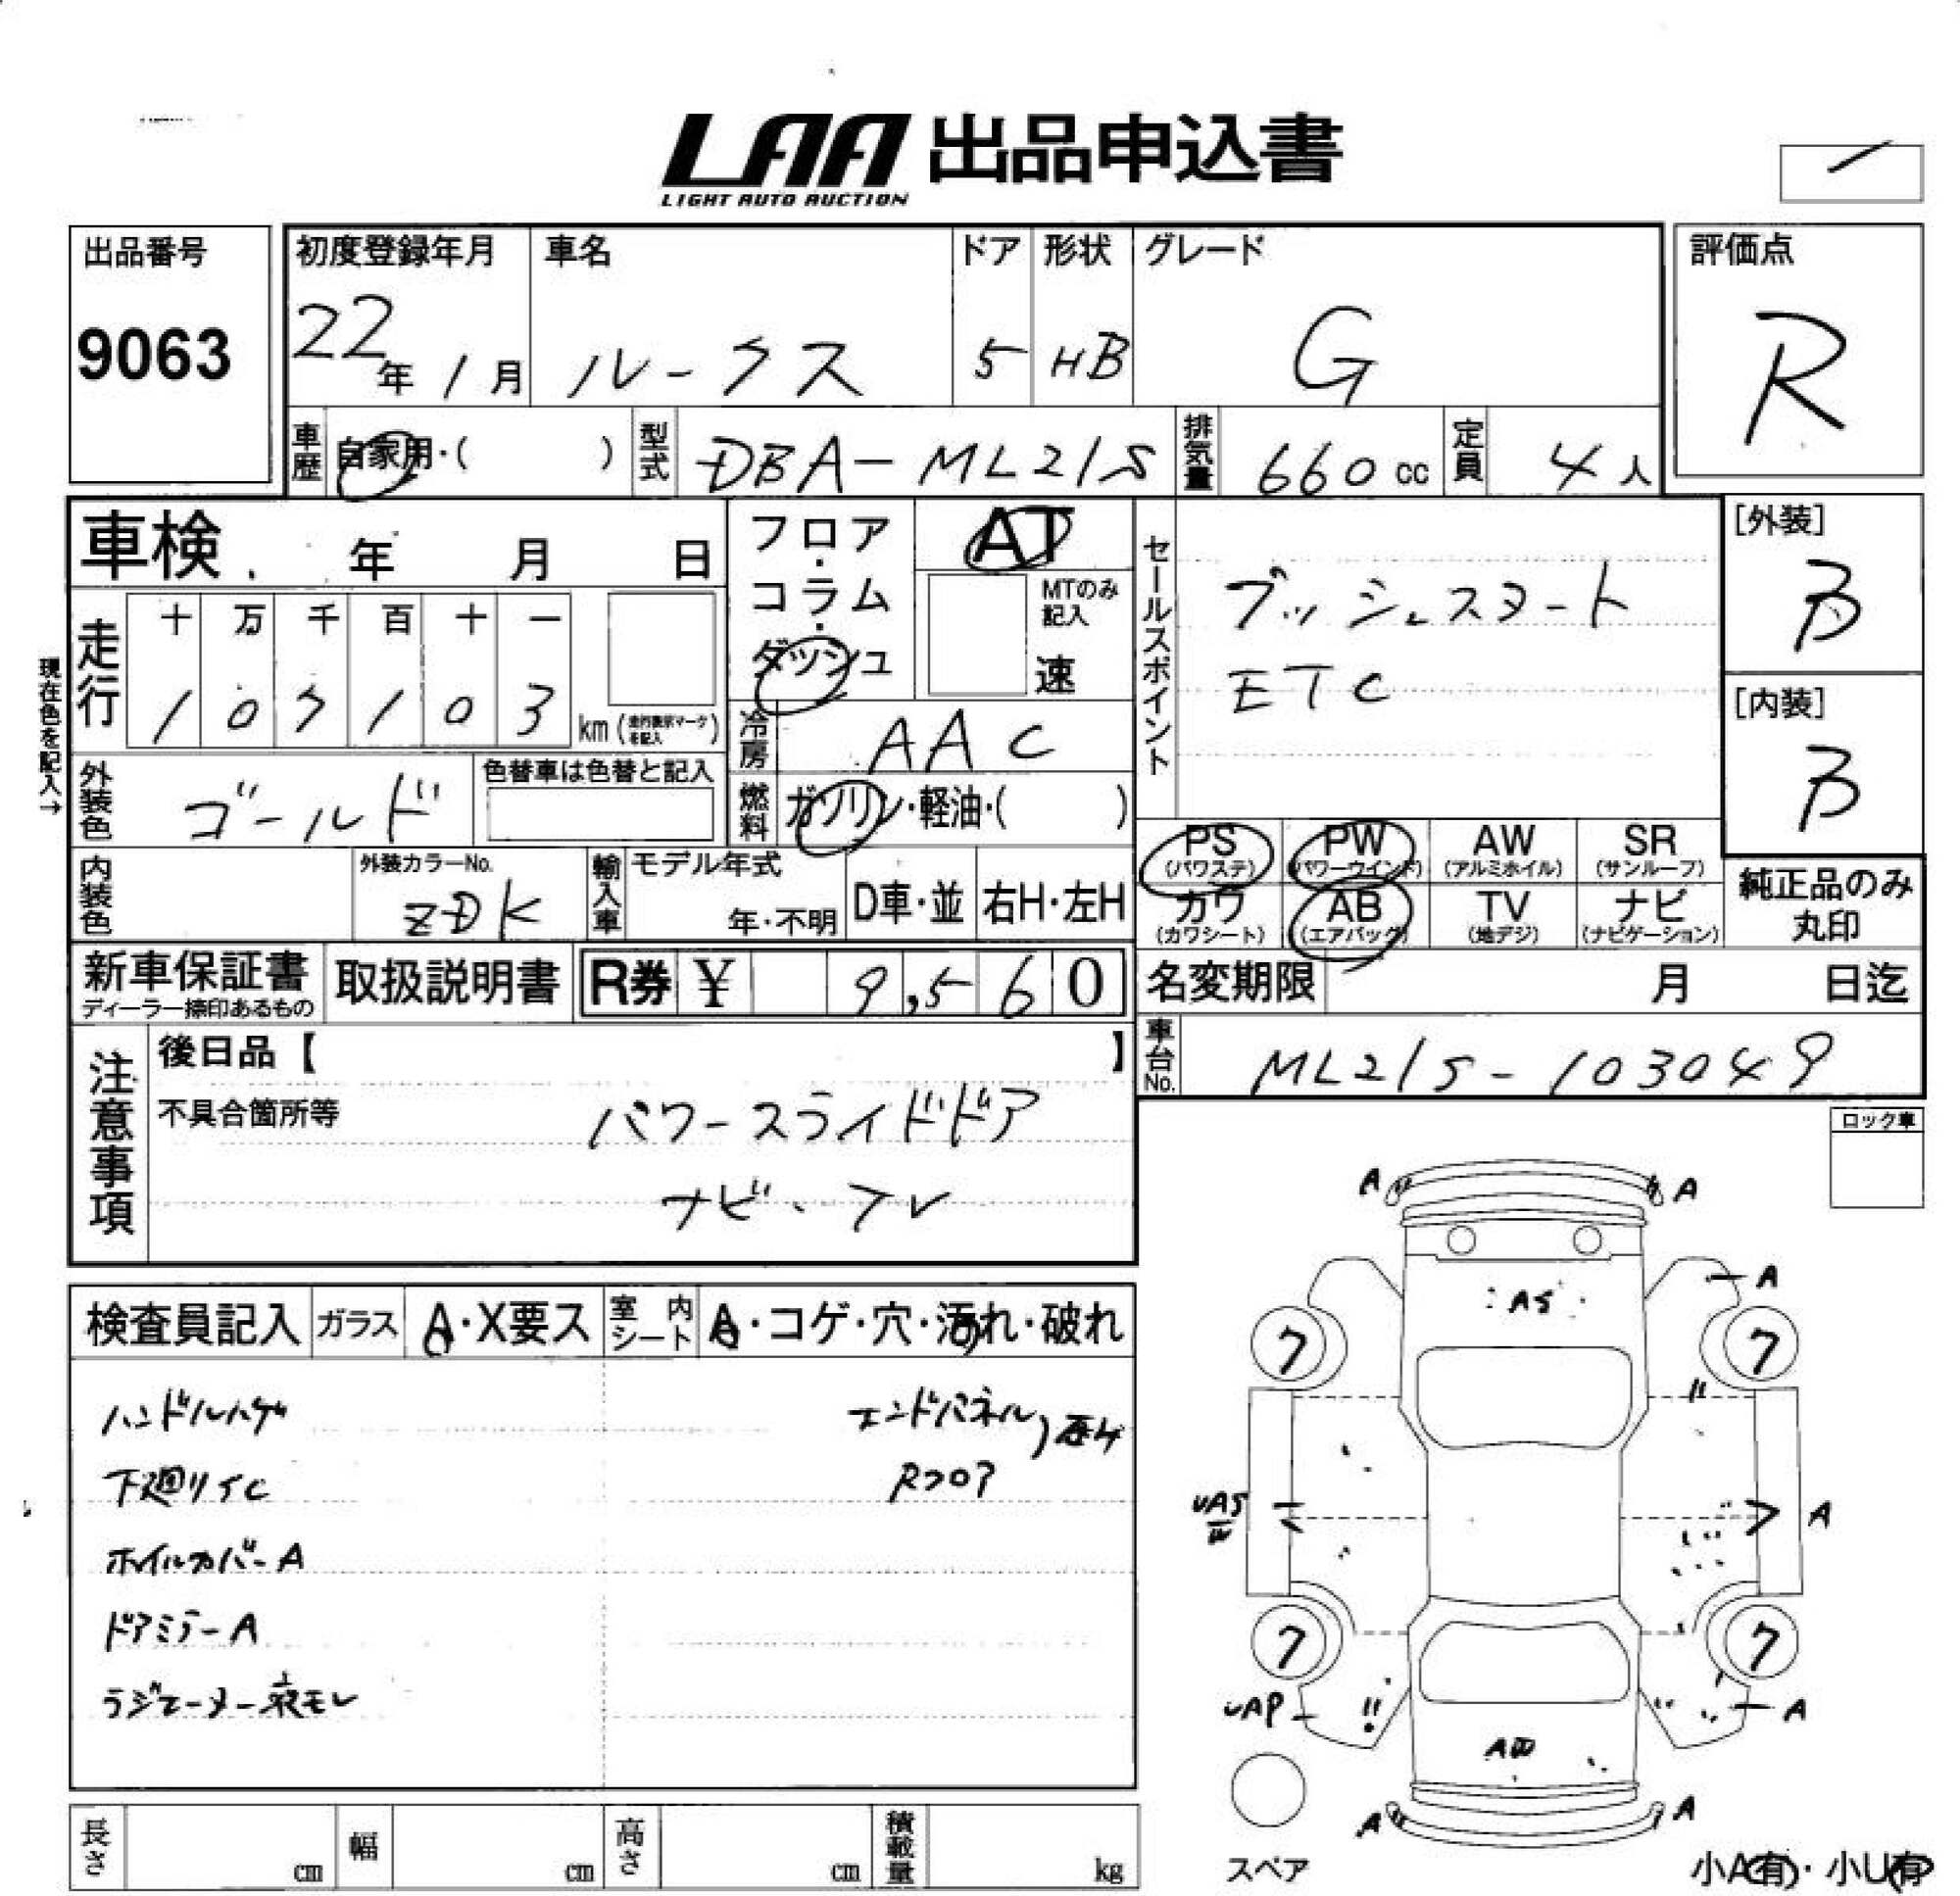 LAA 出品申込書
LIGHT AUTO AUCTION
出品番号
9063
初度登録年月
22年 1月
車名
ルークス
ドア
5
形状
HB
グレード
G
評価点
R
車歴 自家用・( )
型式 DBA-ML21S
排気量 660cc
定員 4人
車検 年 月 日
現在色を記入→
走行
十 万 千 百 十 一
1 0 7 1 0 3 km (走行表示マークを記入)
フロア・コラム・ダッシュ
AT
MTのみ記入
速
冷房 AAC
燃料 ガソリン・軽油・( )
外装色 ゴールド
色替車は色替と記入
内装色
外装カラーNo.
ZDK
輸入車 モデル年式
年・不明
D車・並 右H・左H
セールスポイント
プッシュスタート
ETC
[外装]
B
[内装]
B
PS (パワステ) PW (パワーウインド) AW (アルミホイル) SR (サンルーフ)
カワ (カワシート) AB (エアバッグ) TV (地デジ) ナビ (ナビゲーション)
純正品のみ丸印
新車保証書
ディーラー捺印あるもの
取扱説明書
R券 ¥ 9,560
名変期限 月 日迄
車台No. ML21S-103049
注意事項
後日品【 】
不具合箇所等
パワースライドドア
ナビ・フレ
ロック車
検査員記入 ガラス A・X要ス 室内シート A・コゲ・穴・汚れ・破れ
ハンドルハゲ
下廻りサC
ホイルカバーA
ドアミラーA
ラジエーター液モレ
エンドパネル
Rフロア
A A
A
AS
ワ ワ
UAS
A
ワ ワ
UAP
A
A A
スペア
小A有・小U有
長さ cm 幅 cm 高さ cm 積載量 kg